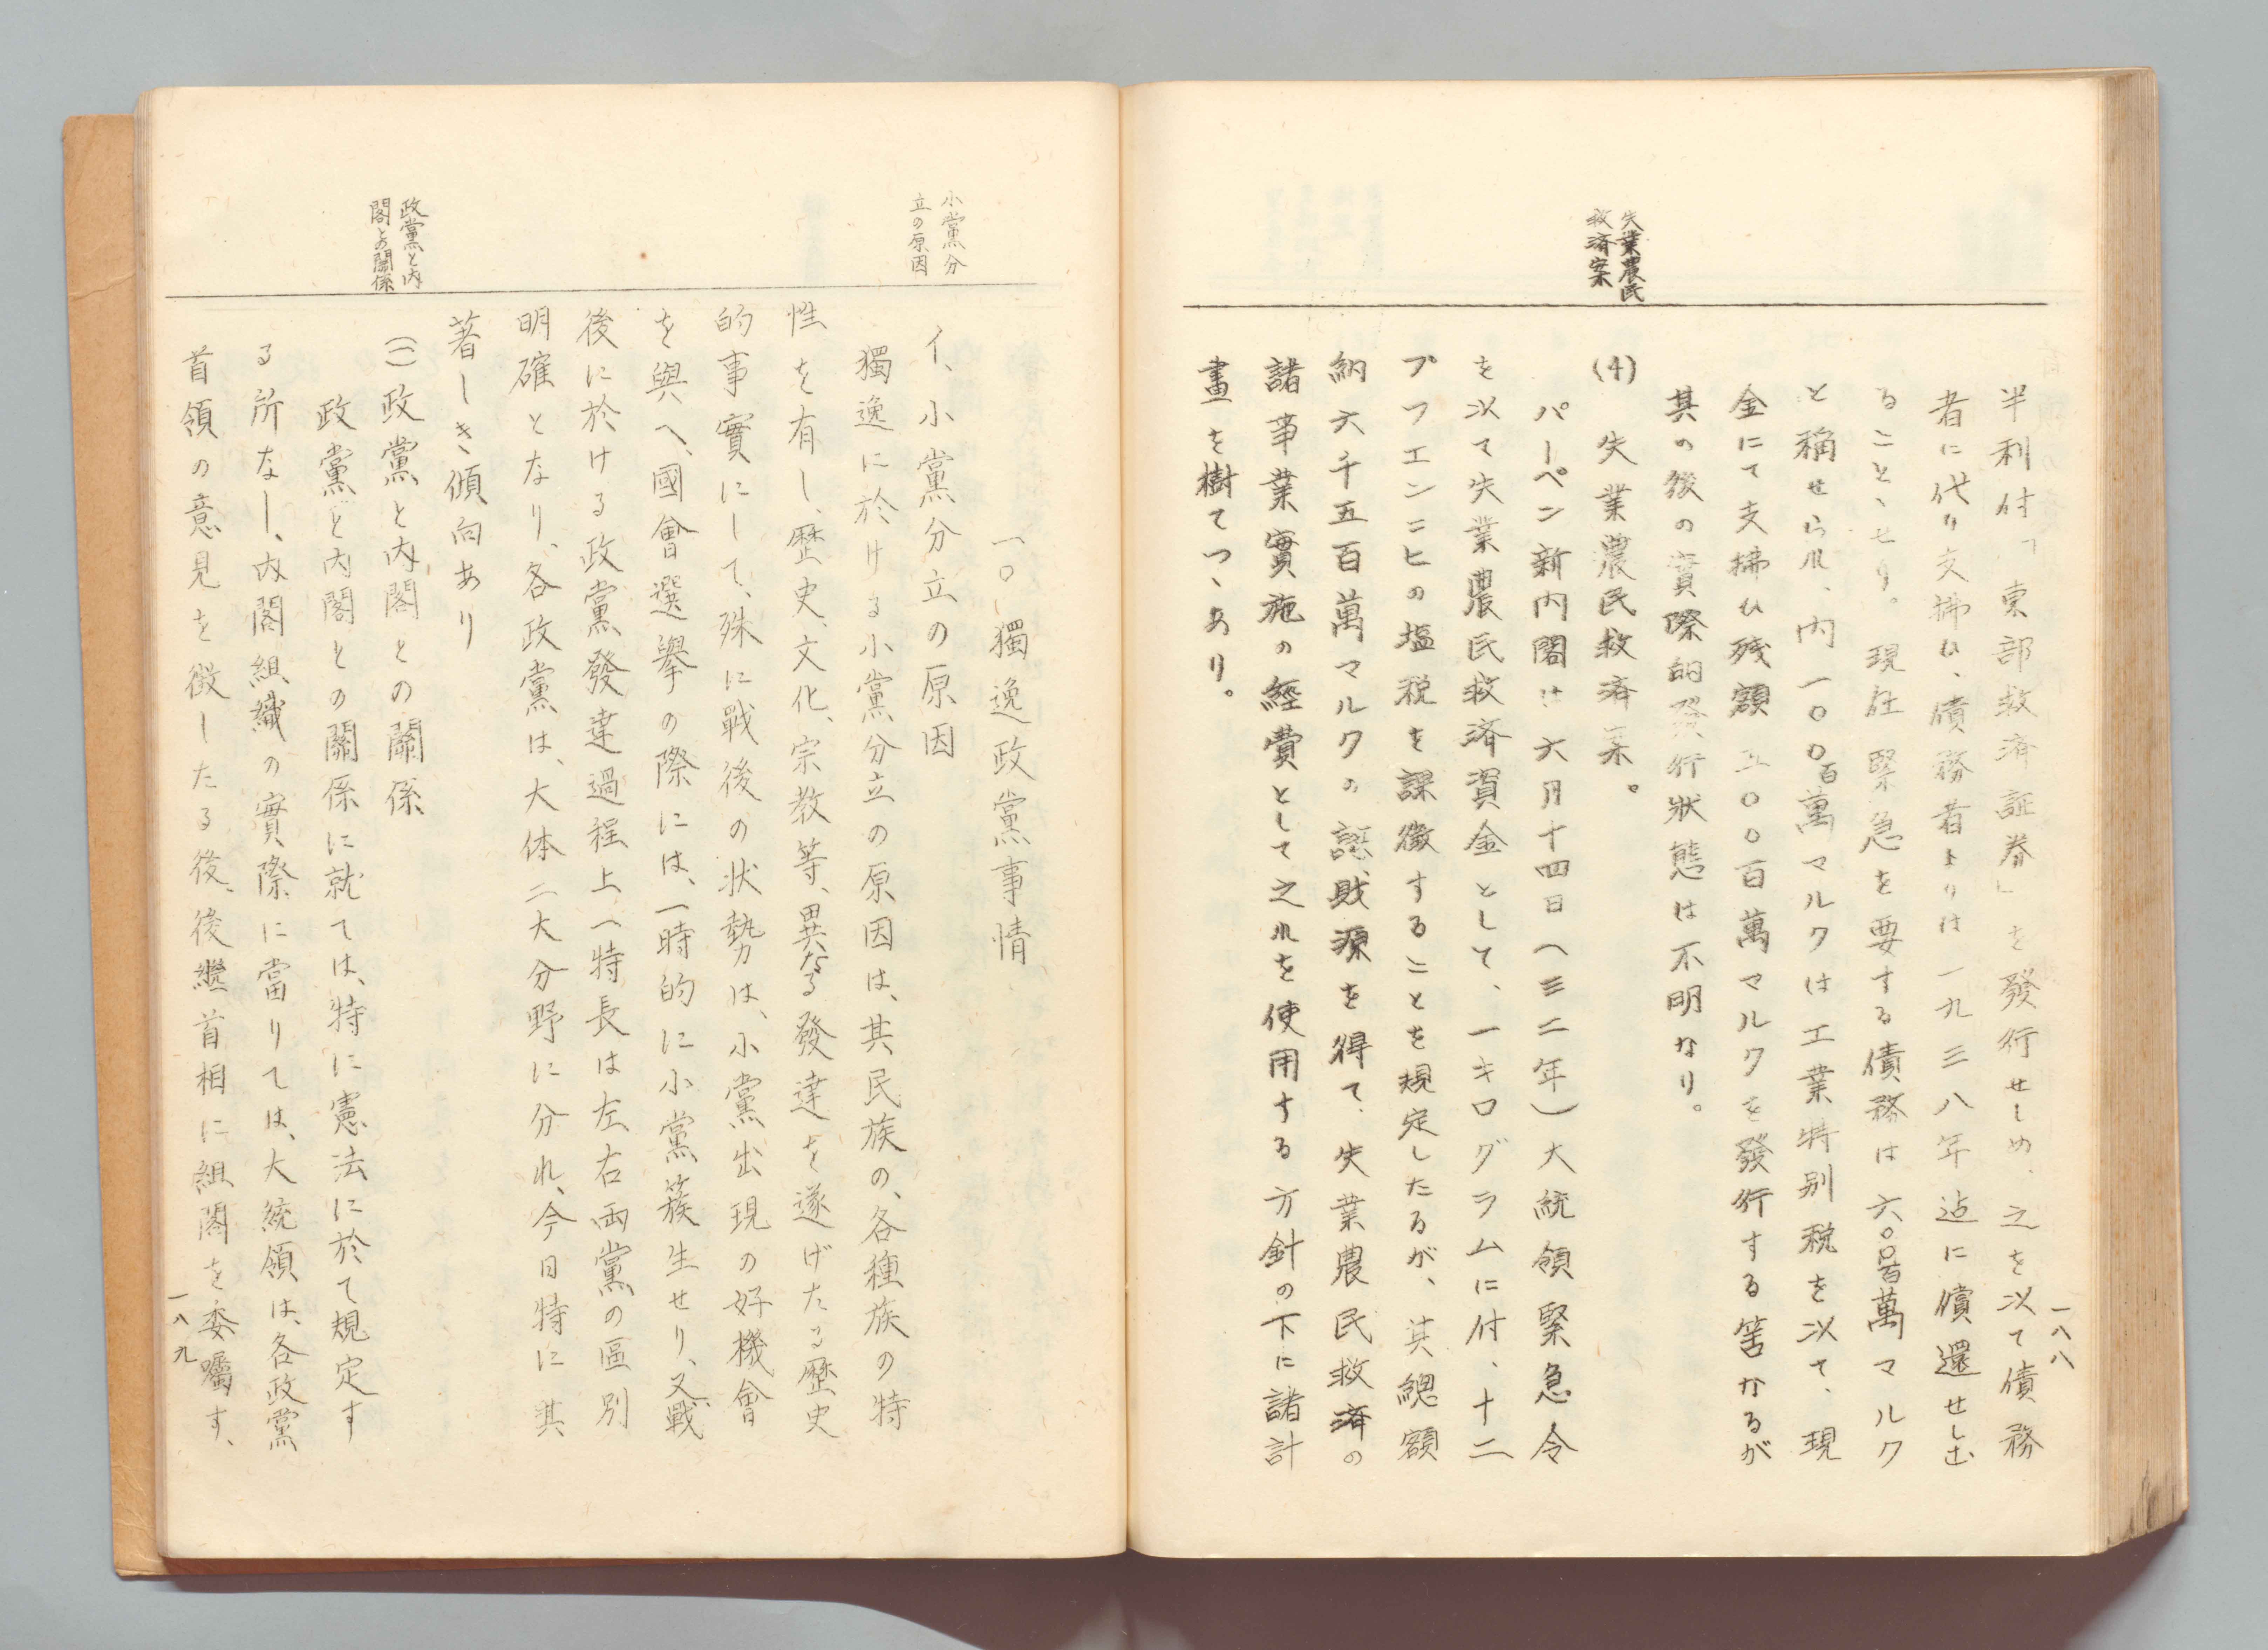 失業農民
救済案
半利付「東部救済証券」を發行せしめ、之を以て債務
者に代り支拂ひ、債務者よりは一九三八年迠に償還せしむ
ることゝせり。現在緊急を要する債務は六〇〇百萬マルク
と稱せられ、内一〇〇百萬マルクは工業特別税を以て、現
金にて支拂ひ残額五〇〇百萬マルクを發行する筈なるが
其の後の實際的發行狀態は不明なり。
(4) 失業農民救済案。
パーペン新内閣は六月十四日(三二年)大統領緊急令
を以て失業農民救済資金として、一キログラムに付、十二
プフエンニヒの塩税を課徴することを規定したるが、其總額
納六千五百萬マルクの
財源を得て、失業農民救済の
諸事業實施の經費として之れを使用する方針の下に諸計
畫を樹てつゝあり。
一八八
小黨分
立の原因
政黨と内
閣との關係
一〇、獨逸政黨事情
イ、小黨分立の原因
獨逸に於ける小黨分立の原因は、其民族の、各種族の特
性を有し、歴史、文化、宗教等、異なる發達を遂げたる歴史
的事實にして、殊に戰後の状勢は、小黨出現の好機會
を與へ、國會選擧の際には、一時的に小黨簇生せり、又戰
後に於ける政黨發達過程上、特長は左右両黨の區別
明確となり、各政黨は、大体二大分野に分れ、今日特に其
著しき傾向あり
(一)政黨と内閣との關係
政黨と内閣との關係に就ては、特に憲法に於て規定す
る所なし、内閣組織の實際に當りては、大統領は、各政黨
首領の意見を徴したる後、後繼首相に組閣を委囑す、
一八九